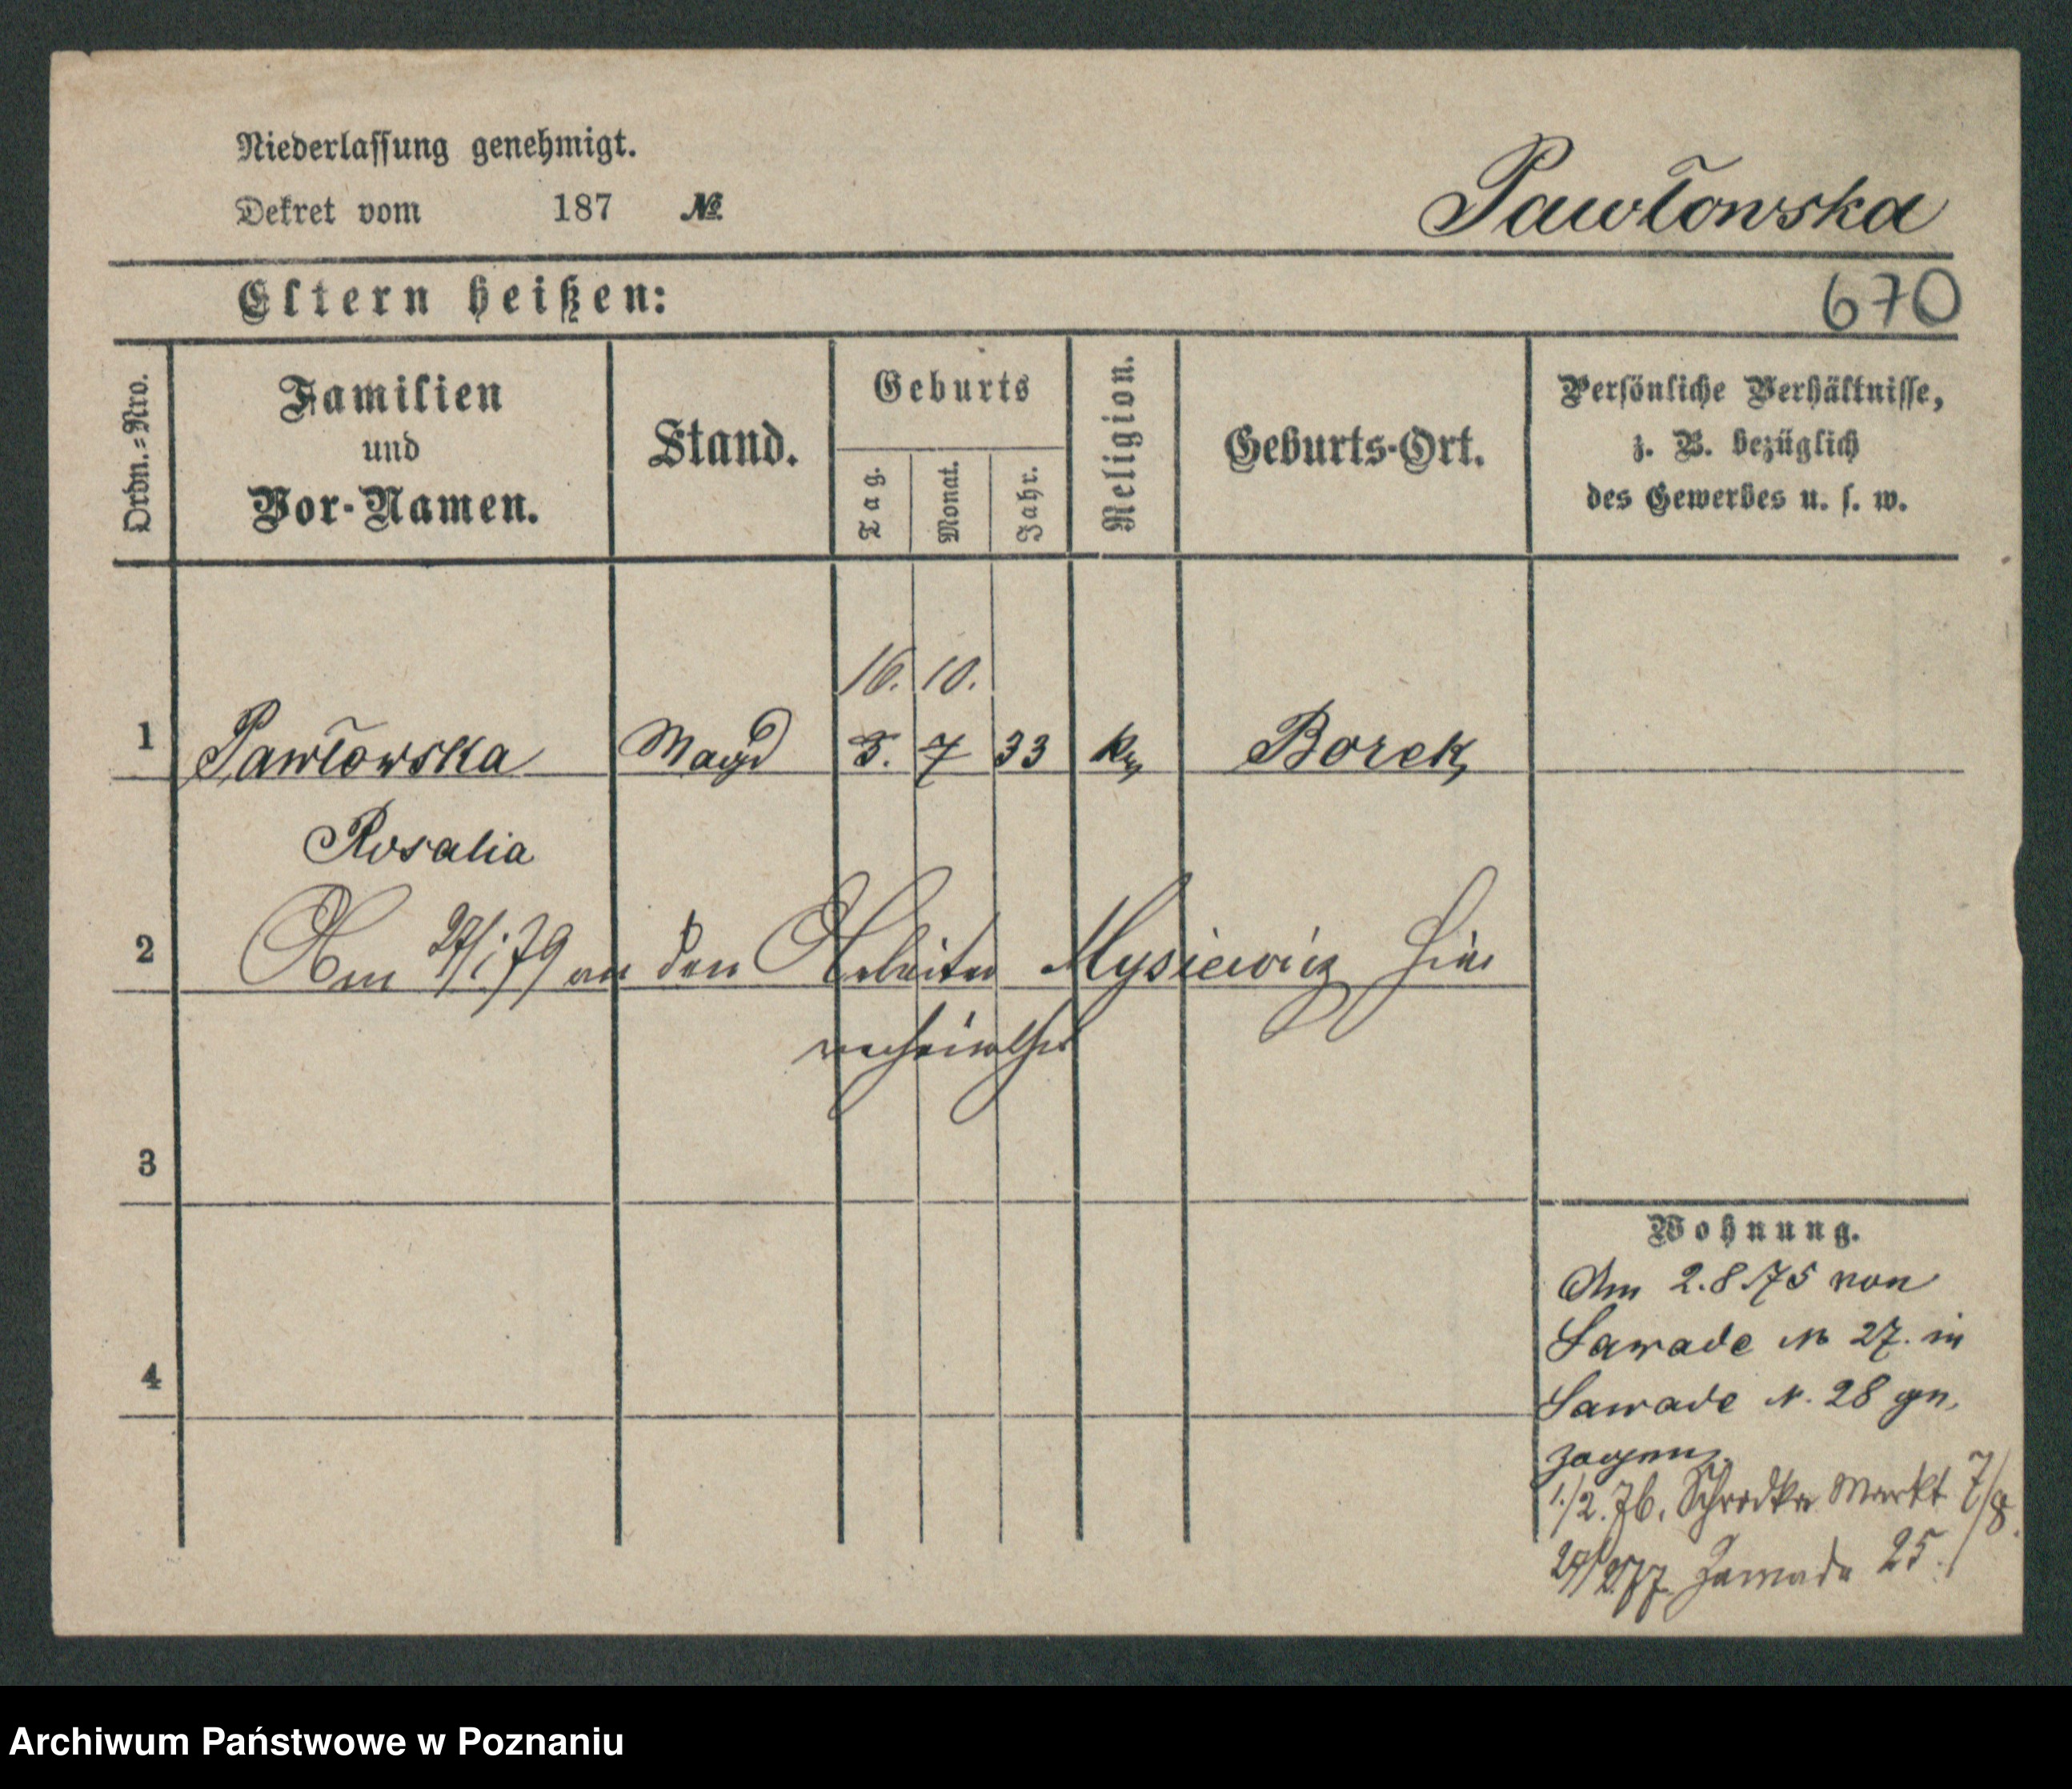 Niederlassung genehmigt.
Dekret vom 187 №
Pawłowska
670
Eltern heißen:
Ordn.=Nro.
Familien
und
Vor-Namen.
Stand.
Geburts
Tag.
Monat.
Jahr.
Religion.
Geburts-Ort.
Persönliche Verhältnisse,
z. B. bezüglich
des Gewerbes u. s. w.
16. 10.
1 Pawłowska Magd 3. 7 33 k Borek
Rosalia
2 Am 27/1.79 an den Arbeiter Mysiewicz hier
verheirathet
3
4
Wohnung.
Am 2.8.75 von
Sawade N 27. in
Sawade N. 28 ge-
zogen.
1./2.76. Schrodka Markt 7/8.
Zawade 25.
Archiwum Państwowe w Poznaniu